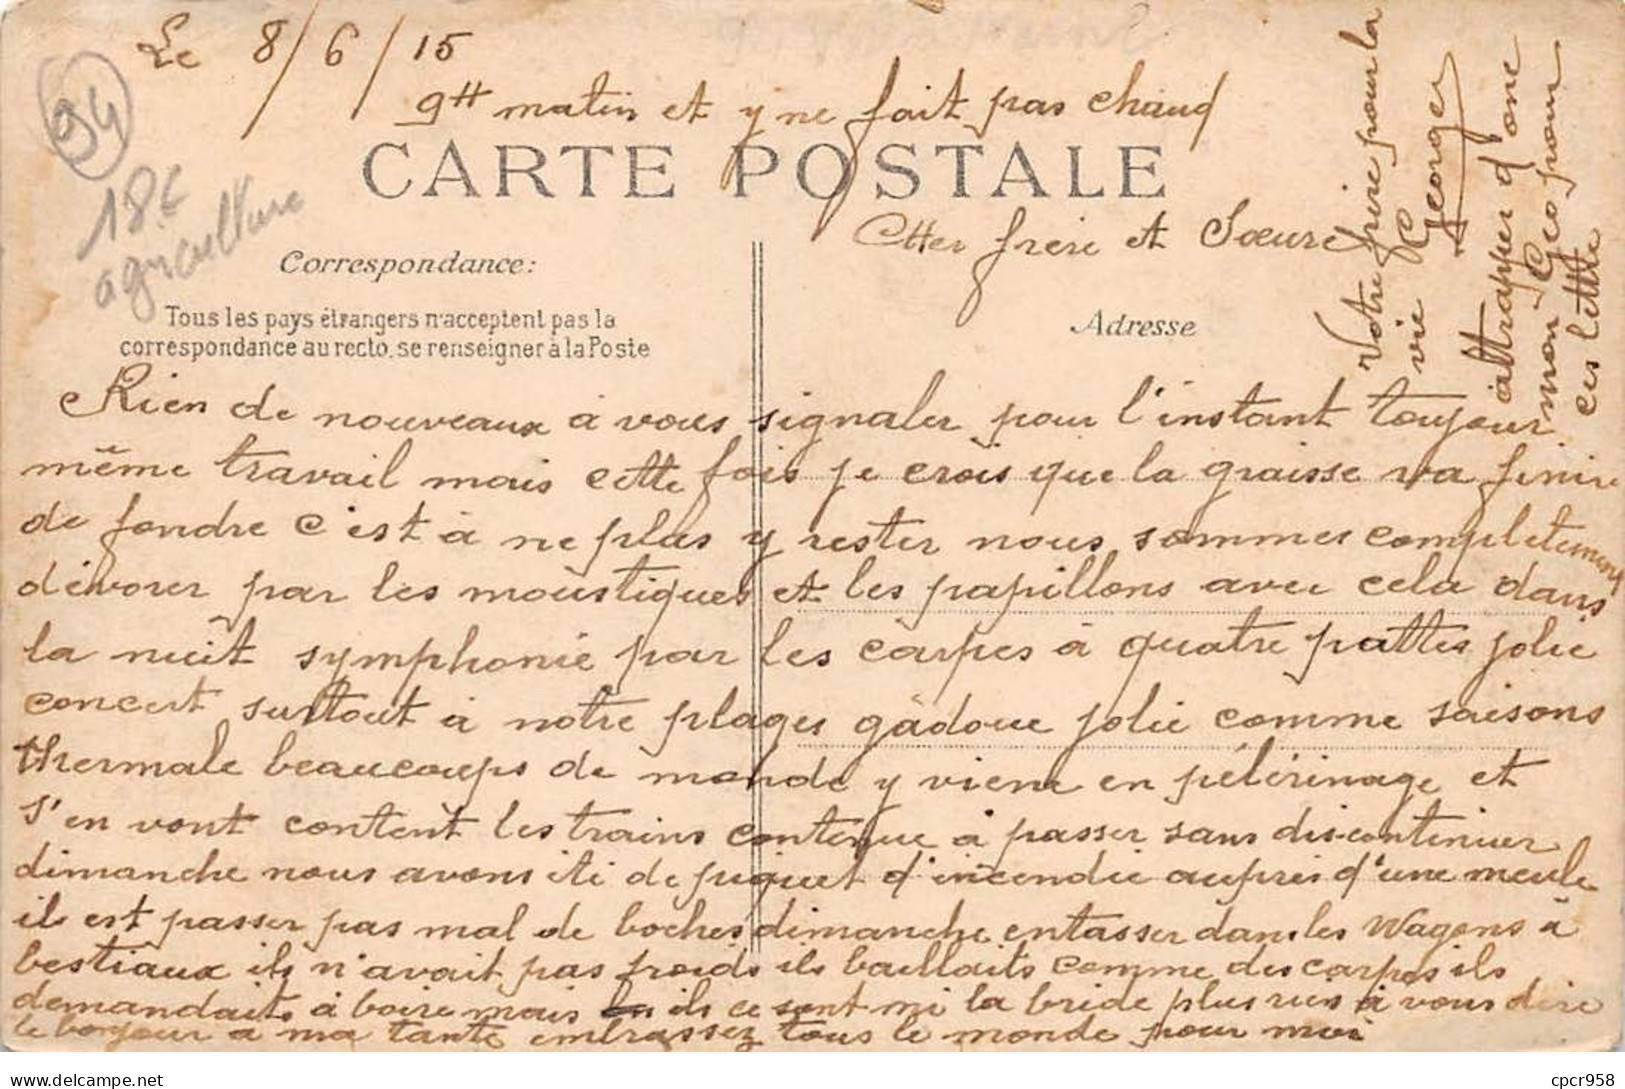 Le 8/6/15
9H matin et y ne fait pas chaud
94
18€
agriculture
CARTE POSTALE
Cher frère et Sœure
Correspondance:
Tous les pays étrangers n'acceptent pas la
correspondance au recto, se renseigner à la Poste
Adresse
Rien de nouveaux à vous signaler pour l'instant toujour
même travail mais cette fois je crois que la graisse va finire
de fondre c'est à ne plus y rester nous sommes completement
dévorer par les moustiques et les papillons avec cela dans
la nuit symphonie par les carpes à quatre pattes jolie
concert surtout à notre plages gadoue jolie comme saisons
thermale beaucoups de monde y vienne en pélérinage et
s'en vont content les trains continue à passer sans discontinuer
dimanche nous avons été de piquet d'incendie auprès d'une meule
il est passer pas mal de boches dimanche entasser dans les Wagons à
bestiaux ils n'avait pas froids ils baillaits comme des carpes ils
demandaits à boire mais ils ce sont mi la bride plus rien à vous dire
le bonjour a ma tante embrassez tous le monde pour moi
Votre frère pour la
vie G
Georges
attrapper d'one
mon Géo pour
ces lettte
cpcr958